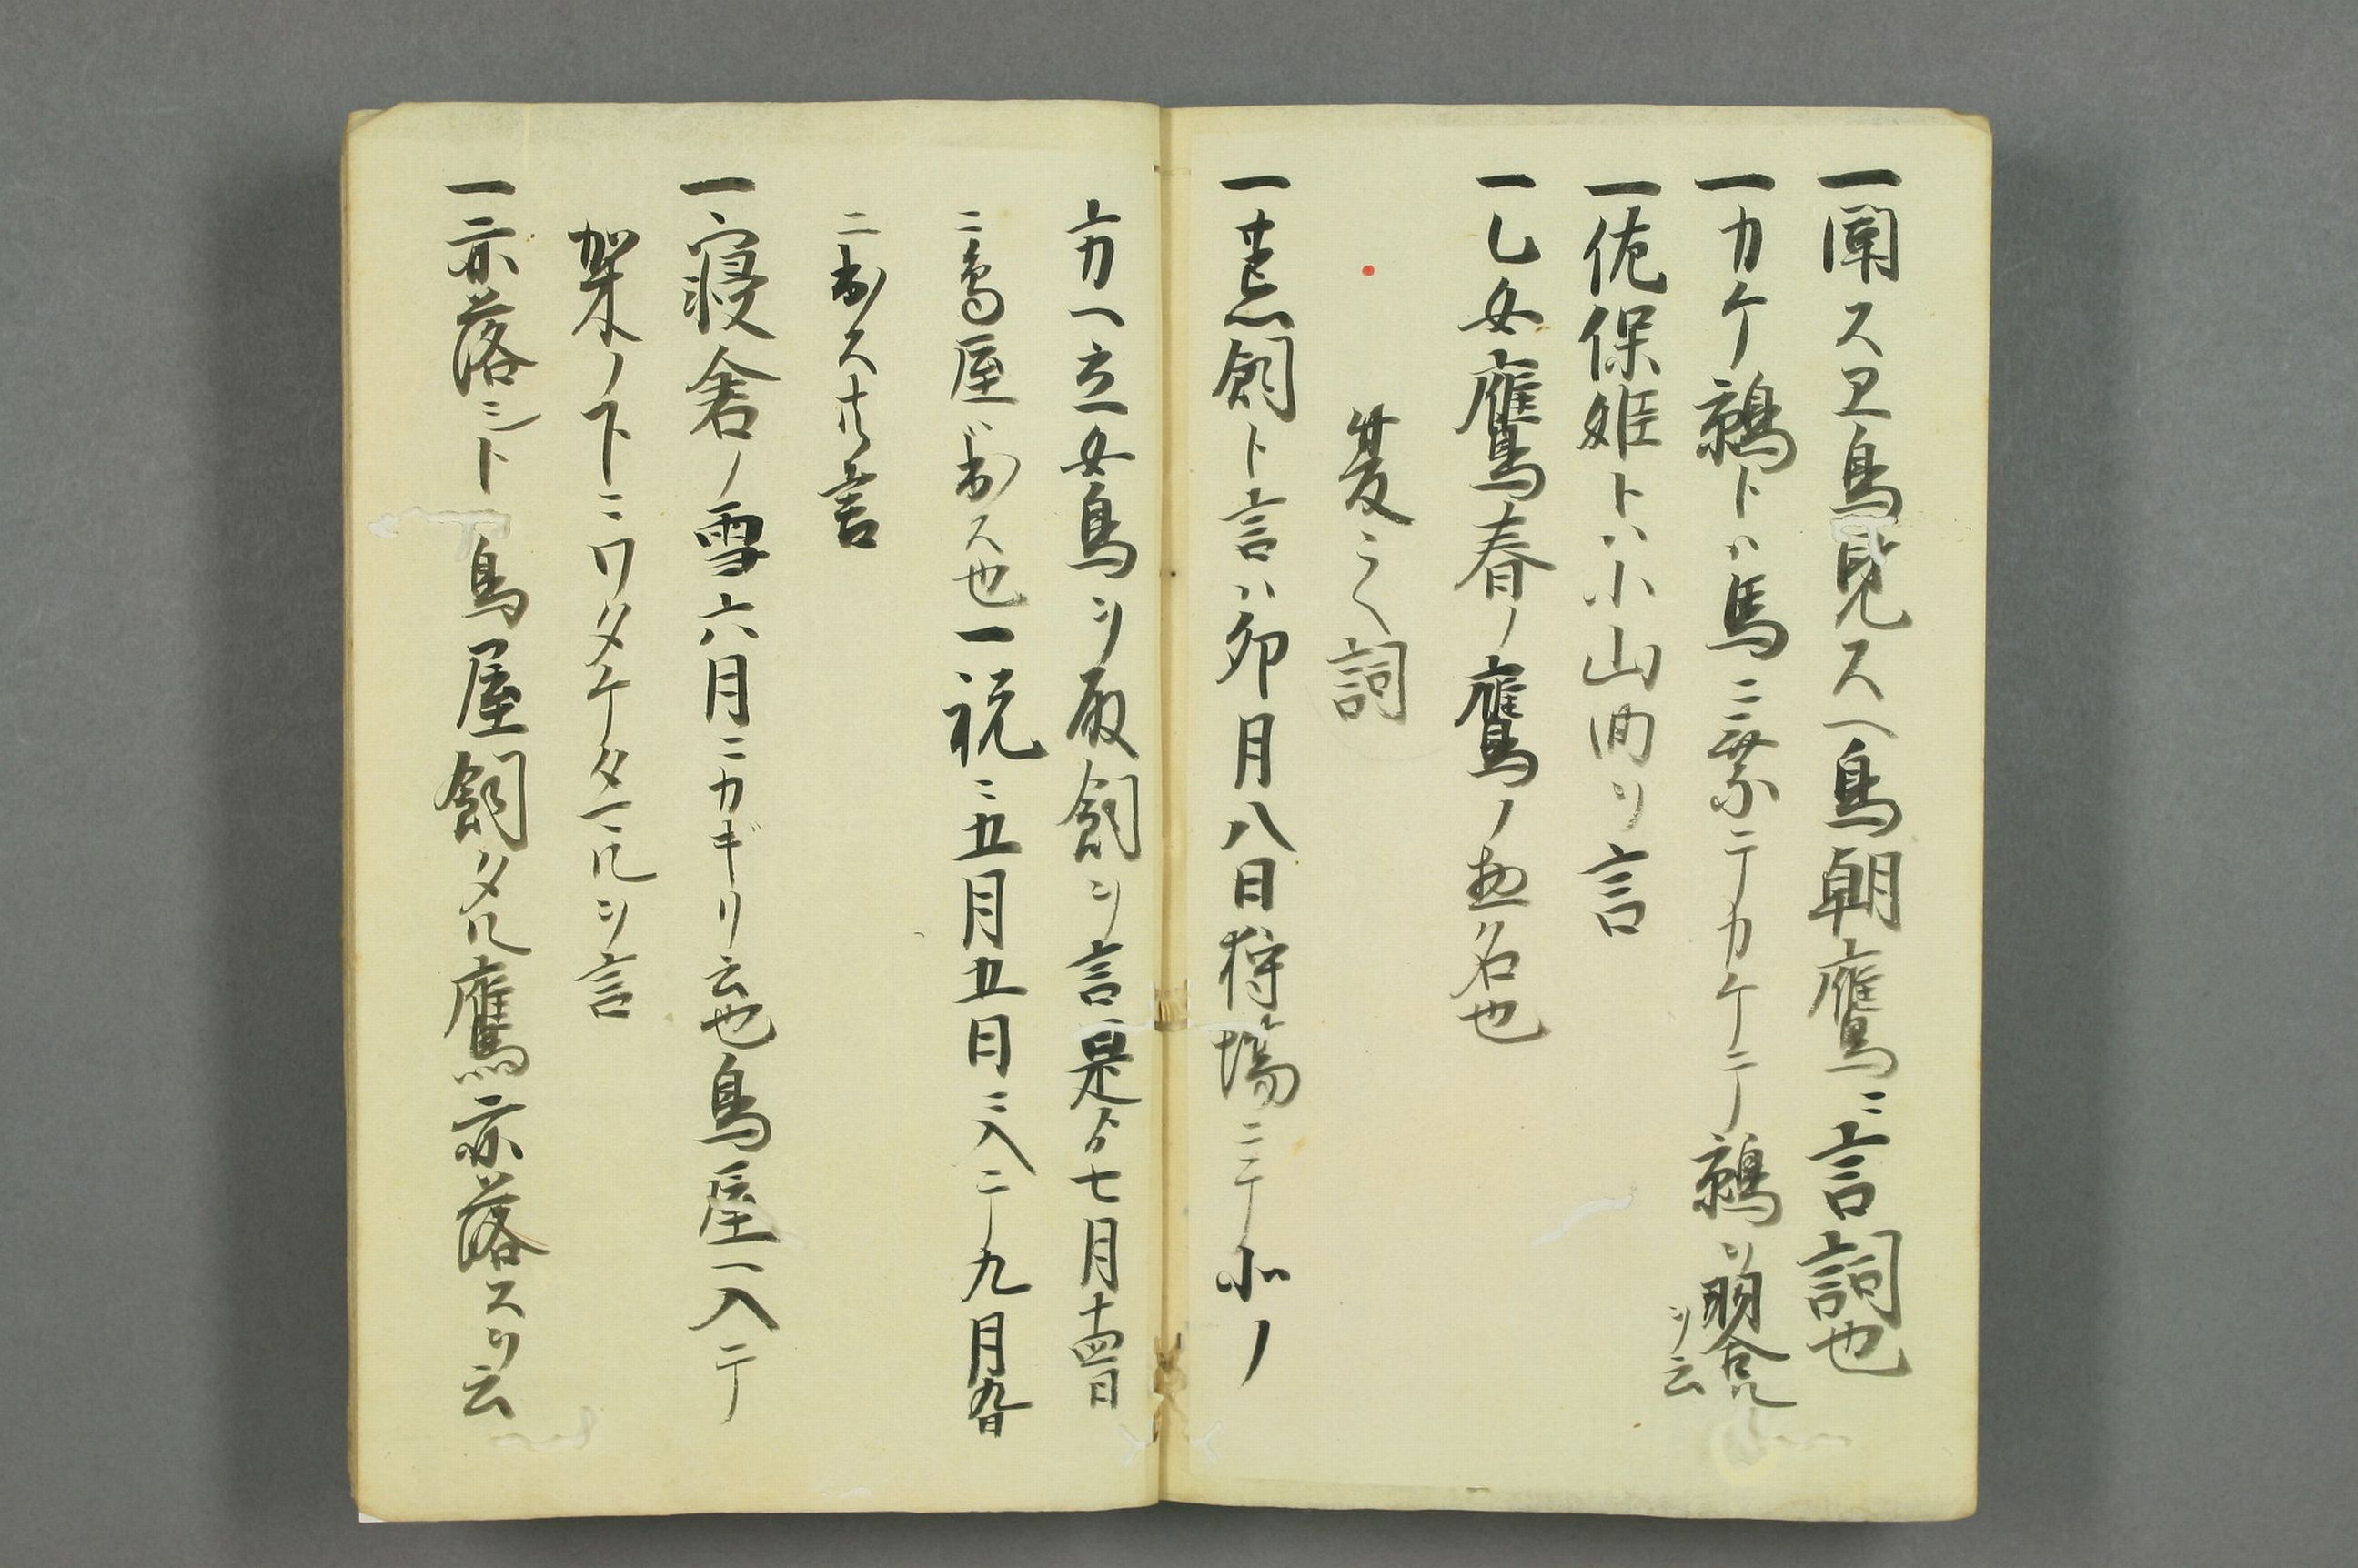 一聞スヱ鳥見スヘ鳥朝鷹ニ言詞也
一カケ鶉トハ馬ニ乗テカケテ鶉ヲ羽合ル
ヲ云
一佐保姫トハ小山回リ言
一乙女鷹春ノ鷹ノ惣名也
夏ニ々詞
一荒飼ト言ハ卯月八日狩場ニテ北ノ
方ヘ立女鳥ヲ取飼ヲ言是ヨリ七月十四日
ニ鳥屋ヲ出ス也一説ニ五月五日ニ入テ九月九日
ニ出ス共言
一寝舎ノ雪六月ニカギリ云也鳥屋ヘ入テ
架ノ下ニワタケタヘルヲ言
一赤落シト鳥屋飼タル鷹赤落スヲ云